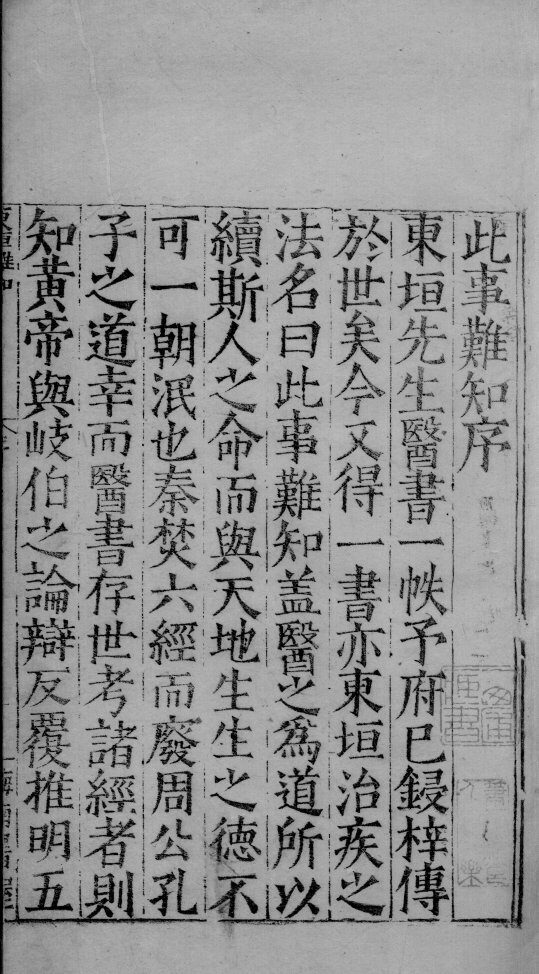 此事難知序
東垣先生醫書一帙予府已鋟梓傳
於世矣今又得一書亦東垣治疾之
法名曰此事難知盖醫之爲道所以
續斯人之命而與天地生生之德不
可一朝泯也秦焚六經而廢周公孔
子之道幸而醫書存世考諸經者則
知黃帝與岐伯之論辯反覆推明五